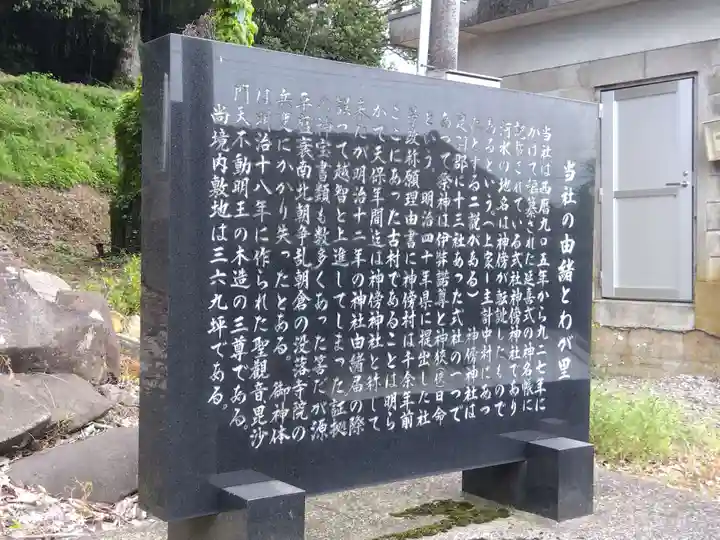 当社の由緒とわが里
当社は西暦九〇五年から九二七年に
かけて編纂された延喜式の神名帳に
記帳されている式社神傍神社であり
河水の地名は神傍が訛訛したもので
あるという。(上家し主計中村にあっ
たとする二説がある) 神傍神社は
足羽郡に十三社あった式社の一つで
あって祭神は伊弉諾尊と神狭(秋)日命
という。明治四十年県に提出した社
号改称願理由書に神傍村は千余年前
ここにあった古村であることは明ら
かで天保年間迄は神傍神社と称して
来たが明治十二年の神社由緒届の際
誤って越智と上進してしまった。証拠
の神宝書類も数多くあった筈だが源
平盛衰南北朝争乱朝倉の没落寺院の
兵火にかかり失ったとある。御神体
は明治十八年に作られた聖観音毘沙
門天不動明王の木造の三尊である。
尚境内敷地は三六九坪である。